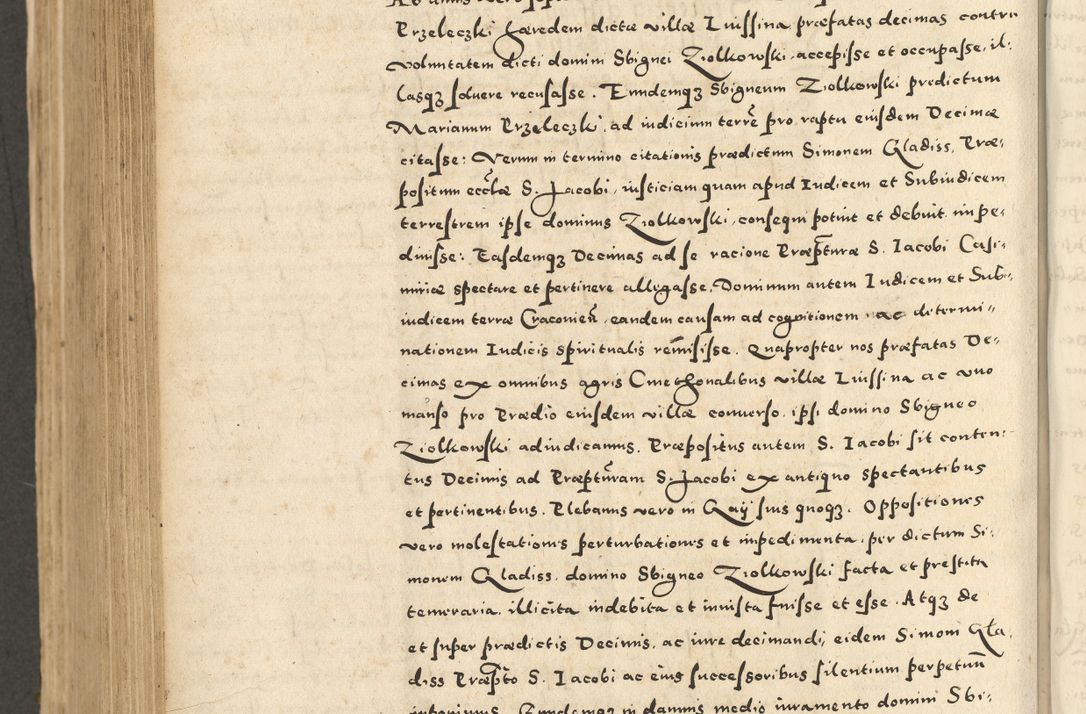 Przeleczki hæredem dictæ villæ Luissina præfatas decimas contra
voluntatem dicti domini Sbignei Ziolkowski, accepisse et occupasse, il-
lasqz soluere recusasse. Eundemqz Sbigneum Ziolkowski predictum
Marianum Przeleczki, ad iudicium terrẽ pro raptu eiusdem Decimæ
citasse: Verum in termino citationis prædictum Simonem Gladiss, Præ-
positum eccłæ S. Jacobi, iusticiam quam apud Iudicem et Subiudicem
terrestrem ipse dominus Ziolkowski, consequi potuit et debuit, impe-
diuisse: Easdemqz Decimas ad se racione Præpturæ S. Iacobi Casi-
miriæ spectare et pertinere allegasse. Dominum autem Iudicem et Sub-
iudicem terræ Cracovień, eandem causam ad cognitionem ac determi-
nationem Iudicis spiritualis remisisse. Quapropter nos præfatas De-
cimas ex omnibus agris Cmethonalibus villæ Luissina ac vno
manso pro Prædio eiusdem villæ conuerso, ipsi domino Sbigneo
Ziolkowski adiudicamus. Præpositus autem S. Iacobi sit conten-
tus Decimis ad Præpturam S. Jacobi ex antiquo spectantibus
et pertinentibus. Plebanus vero in Gaÿ suis quoqz. Oppositiones
vero molestationes perturbationes et impedimenta, per dictum Si-
monem Gladiss, domino Sbigneo Ziolkowski facta et prestita
temeraria, illicita indebita et iniusta fuisse et esse. Atqz de
et super prædictis Decimis, ac iure decimandi, eidem Simoni Gla-
diss Præpto S. Iacobi ac eius successoribus silentium perpetuũ
imponimus. Eundemqz in damnis medio iuramento domini Sbi-